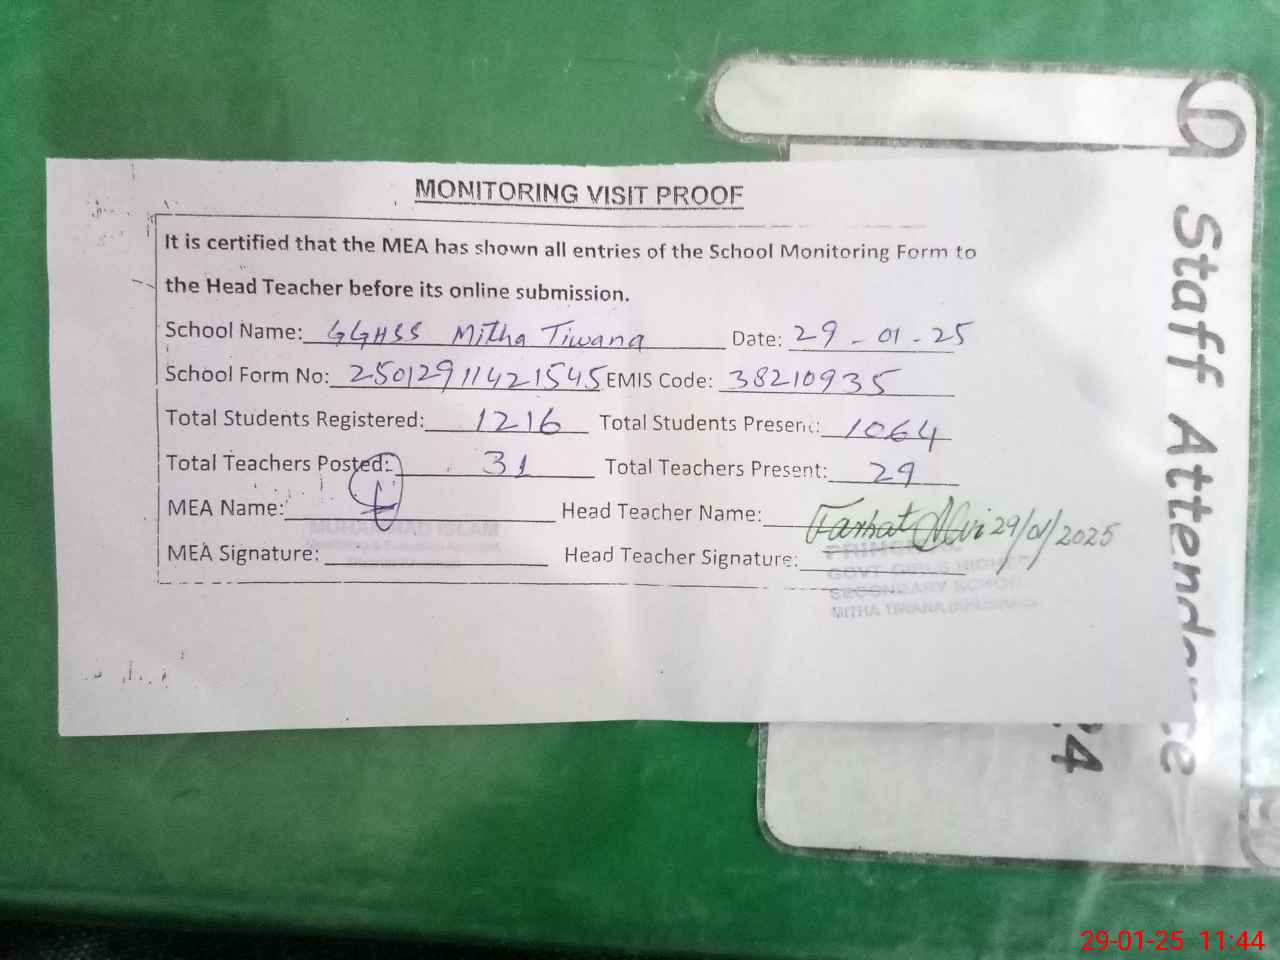 MONITORING VISIT PROOF
It is certified that the MEA has shown all entries of the School Monitoring Form to
the Head Teacher before its online submission.
School Name: GGHSS Mitha Tiwana Date: 29-01-25
School Form No: 25012911421545 EMIS Code: 38210935
Total Students Registered: 1216 Total Students Present: 1064
Total Teachers Posted: 31 Total Teachers Present: 29
MEA Name: Head Teacher Name: Farhat Alvi 29/01/2025
MUHAMMAD ISLAM
MEA Signature: Head Teacher Signature:
PRINCIPAL
GOVT GIRLS HIGHER
SECONDARY SCHOOL
MITHA TIWANA
Staff Attendance
24
29-01-25 11:44